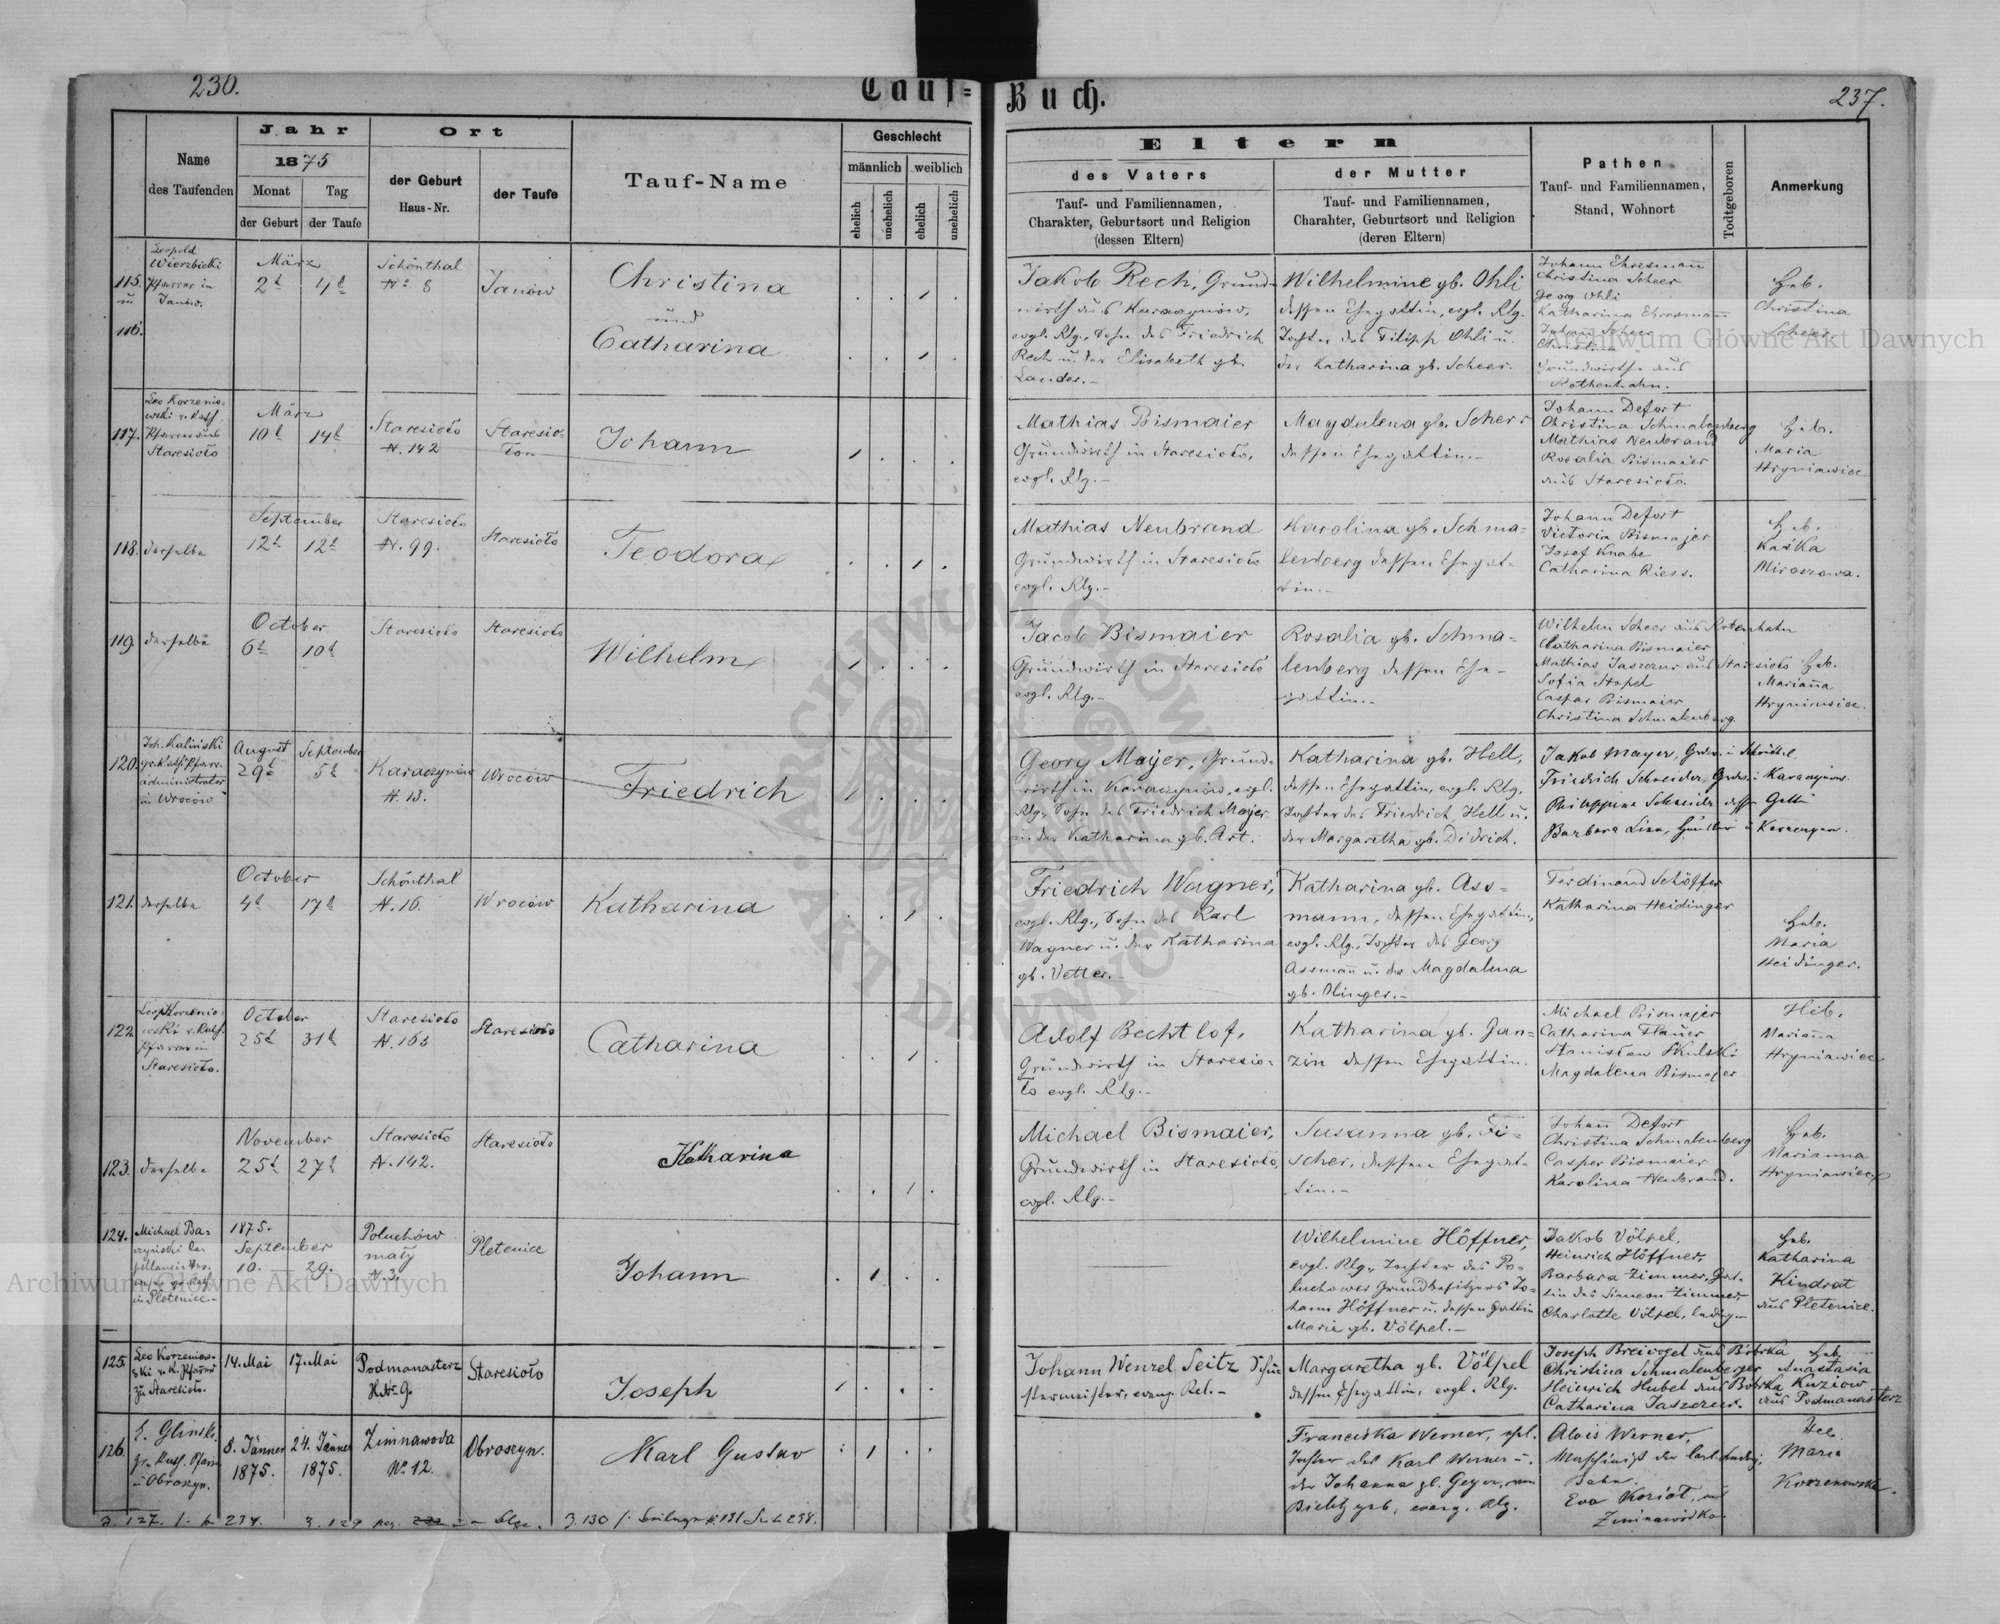 230.
Tauf=
Buch.
237.
Name
des Taufenden
Jahr
1875
Monat
Tag
der Geburt
der Taufe
Ort
der Geburt
Haus-Nr.
der Taufe
Tauf-Name
Geschlecht
männlich
weiblich
ehelich
unehelich
ehelich
unehelich
Eltern
des Vaters
Tauf- und Familiennamen,
Charakter, Geburtsort und Religion
(dessen Eltern)
der Mutter
Tauf- und Familiennamen,
Charahter, Geburtsort und Religion
(deren Eltern)
Pathen
Tauf- und Familiennamen,
Stand, Wohnort
Todtgeboren
Anmerkung
115.
u
116.
Leopold
Wierzbicki
Pfarrer in
Janów.
März
2t
4t
Schönthal
Nr 8
Janów
Christina
und
Catharina
Jakob Rech, Grund-
wirth aus Karaczynów,
evgl. Rlg., Sohn des Friedrich
Rech u. der Elisabeth gb.
Landes.-
Wilhelmine gb. Ohli
dessen Ehegattin, evgl. Rlg.
Tochter des Filipp Ohli u.
der Katharina gb. Scheer.
Johann Ehresmann
Christina Scheer
Georg Ohli
Katharina Ehresmann
Johann Scheer
Christina
Grundwirthe aus
Rothenhahn.
Heb.
Christina
Scheer
117.
Leo Korzenio-
wski r. kath
Pfarrer aus
Staresioło
März
10t
14t
Staresioło
N. 142
Staresio-
ło
Johann
Mathias Bismaier
Grundwirth in Staresioło,
evgl. Rlg.-
Magdalena gb. Scherr
dessen Ehegattin.-
Johann Defort
Christina Schmalenberg
Mathias Neubrand
Rosalia Bismaier
aus Staresioło.
Heb.
Maria
Hryniawiec
118.
derselbe
September
12t
12t
Staresioło
N. 99.
Staresioło
Teodora
Mathias Neubrand
Grundwirth in Staresioło
evgl. Rlg.-
Karolina gb. Schma-
lenberg dessen Ehegat-
tin.-
Johann Defort
Victoria Bismajer
Josef Knabe
Catharina Riess.
Heb.
Kaśka
Miroszowa.
119.
derselbe
October
6t
10t
Staresioło
Staresioło
Wilhelm
Jacob Bismaier
Grundwirth in Staresioło
evgl. Rlg.-
Rosalia gb. Schma-
lenberg dessen Ehe-
gattin.-
Wilhelm Scheer aus Rotenhahn
Catharina Bismaier
Mathias Jaszczur aus Staresioło
Sofia Stapel
Caspar Bismaier
Christina Schmalenberg.
Heb.
Marianna
Hryniawiec.
120.
Joh. Kaliński
gr. kath. Pfarr-
administrator
in Wroców
August
29t
September
5t
Karaczynów
N. 13.
Wroców
Friedrich
Georg Mayer, Grund-
wirth in Karaczynów, evgl.
Rlg., Sohn des Friedrich Mayer
u. der Katharina gb. Art.
Katharina gb. Hell,
dessen Ehegattin, evgl. Rlg.
Tochter des Friedrich Hell u.
der Margaretha gb. Didrich.
Jakob Mayer,
Friedrich Schneider,
Philippine Schneider dessen Gattin
Barbara
121.
derselbe
October
4t
17t
Schönthal
N. 16.
Wroców
Katharina
Friedrich Wagner,
evgl. Rlg., Sohn des Karl
Wagner u. der Katharina
gb. Vetter.-
Katharina gb. Ass-
mann, dessen Ehegattin,
evgl. Rlg., Tochter des Georg
Assmann u. der Magdalena
gb. Olinger.-
Ferdinand Schöffer
Katharina Heidinger
Heb.
Maria
Heidinger.
122.
Leo Korzenio-
wski r. kath.
Pfarrer in
Staresioło.
October
25t
31t
Staresioło
N. 163
Staresioło
Catharina
Adolf Bechtlof,
Grundwirth in Staresio-
ło evgl. Rlg.-
Katharina gb. Jan-
zin dessen Ehegattin.
Michael Bismajer
Catharina Flauer
Stanisław Skulski
Magdalena Bismajer
Heb.
Marianna
Hryniawiec
123.
derselbe
November
25t
27t
Staresioło
N. 142.
Staresioło
Katharina
Michael Bismaier,
Grundwirth in Staresioło,
evgl. Rlg.-
Susanna gb. Fi-
scher, dessen Ehegat-
tin.-
Johann Defort
Christina Schmalenberg
Casper Bismaier
Karolina Neubrand.
Heb.
Marianna
Hryniawiec
124.
Michael Ba-
czyński
in Pletenice.-
1875.
September
10.
29.
Poluchów
mały
N. 3.
Pletenice
Johann
Wilhelmine Höffner,
evgl. Rlg., Tochter des Po-
luchower Grundbesitzers Jo-
hann Höffner u. dessen Gattin
Marie gb. Völpel.-
Jakob Völpel,
Heinrich Höffner,
Barbara Zimmer, Gat-
tin des Simeon Zimmer
Charlotte Völpel, ledig.-
Heb.
Katharina
Kindrat
aus Pletenice.
125.
Leo Korzeniow-
ski r. k. Pfarrer
zu Staresioło.
14. Mai
17. Mai
Podmanasterz
H. Nr 9.
Staresioło
Joseph
Johann Wenzel Seitz Schu-
stermeister, evang. Rel.-
Margaretha gb. Völpel
dessen Ehegattin, evgl. Rlg.
Joseph Breivogel aus Bóbrka
Christina Schmalenberger
Heinrich Hubel aus Bóbrka
Catharina Jaszczur.
Heb.
Anastasia
Kuziow
aus Podmanasterz
126.
Glinski
gr. kath. Pfarrer
in Obroszyn.
8. Jänner
1875.
24. Jänner
1875.
Zimnawoda
Nr. 12.
Obroszyn.
Karl Gustav
Franciska Werner, evgl.
Tochter des Karl Werner u.
der Johanna gb. Geyer, von
Bielitz geb., evang. Rlg.
Alois Werner,
Maschinist der Carl Ludwig
Bahn.
Eva Koziot, aus
Zimnawódka
Heb.
Maria
Korzenowska.
Archiwum Główne Akt Dawnych
Archiwum Główne Akt Dawnych
ARCHIWUM GŁÓWNE
AKT DAWNYCH